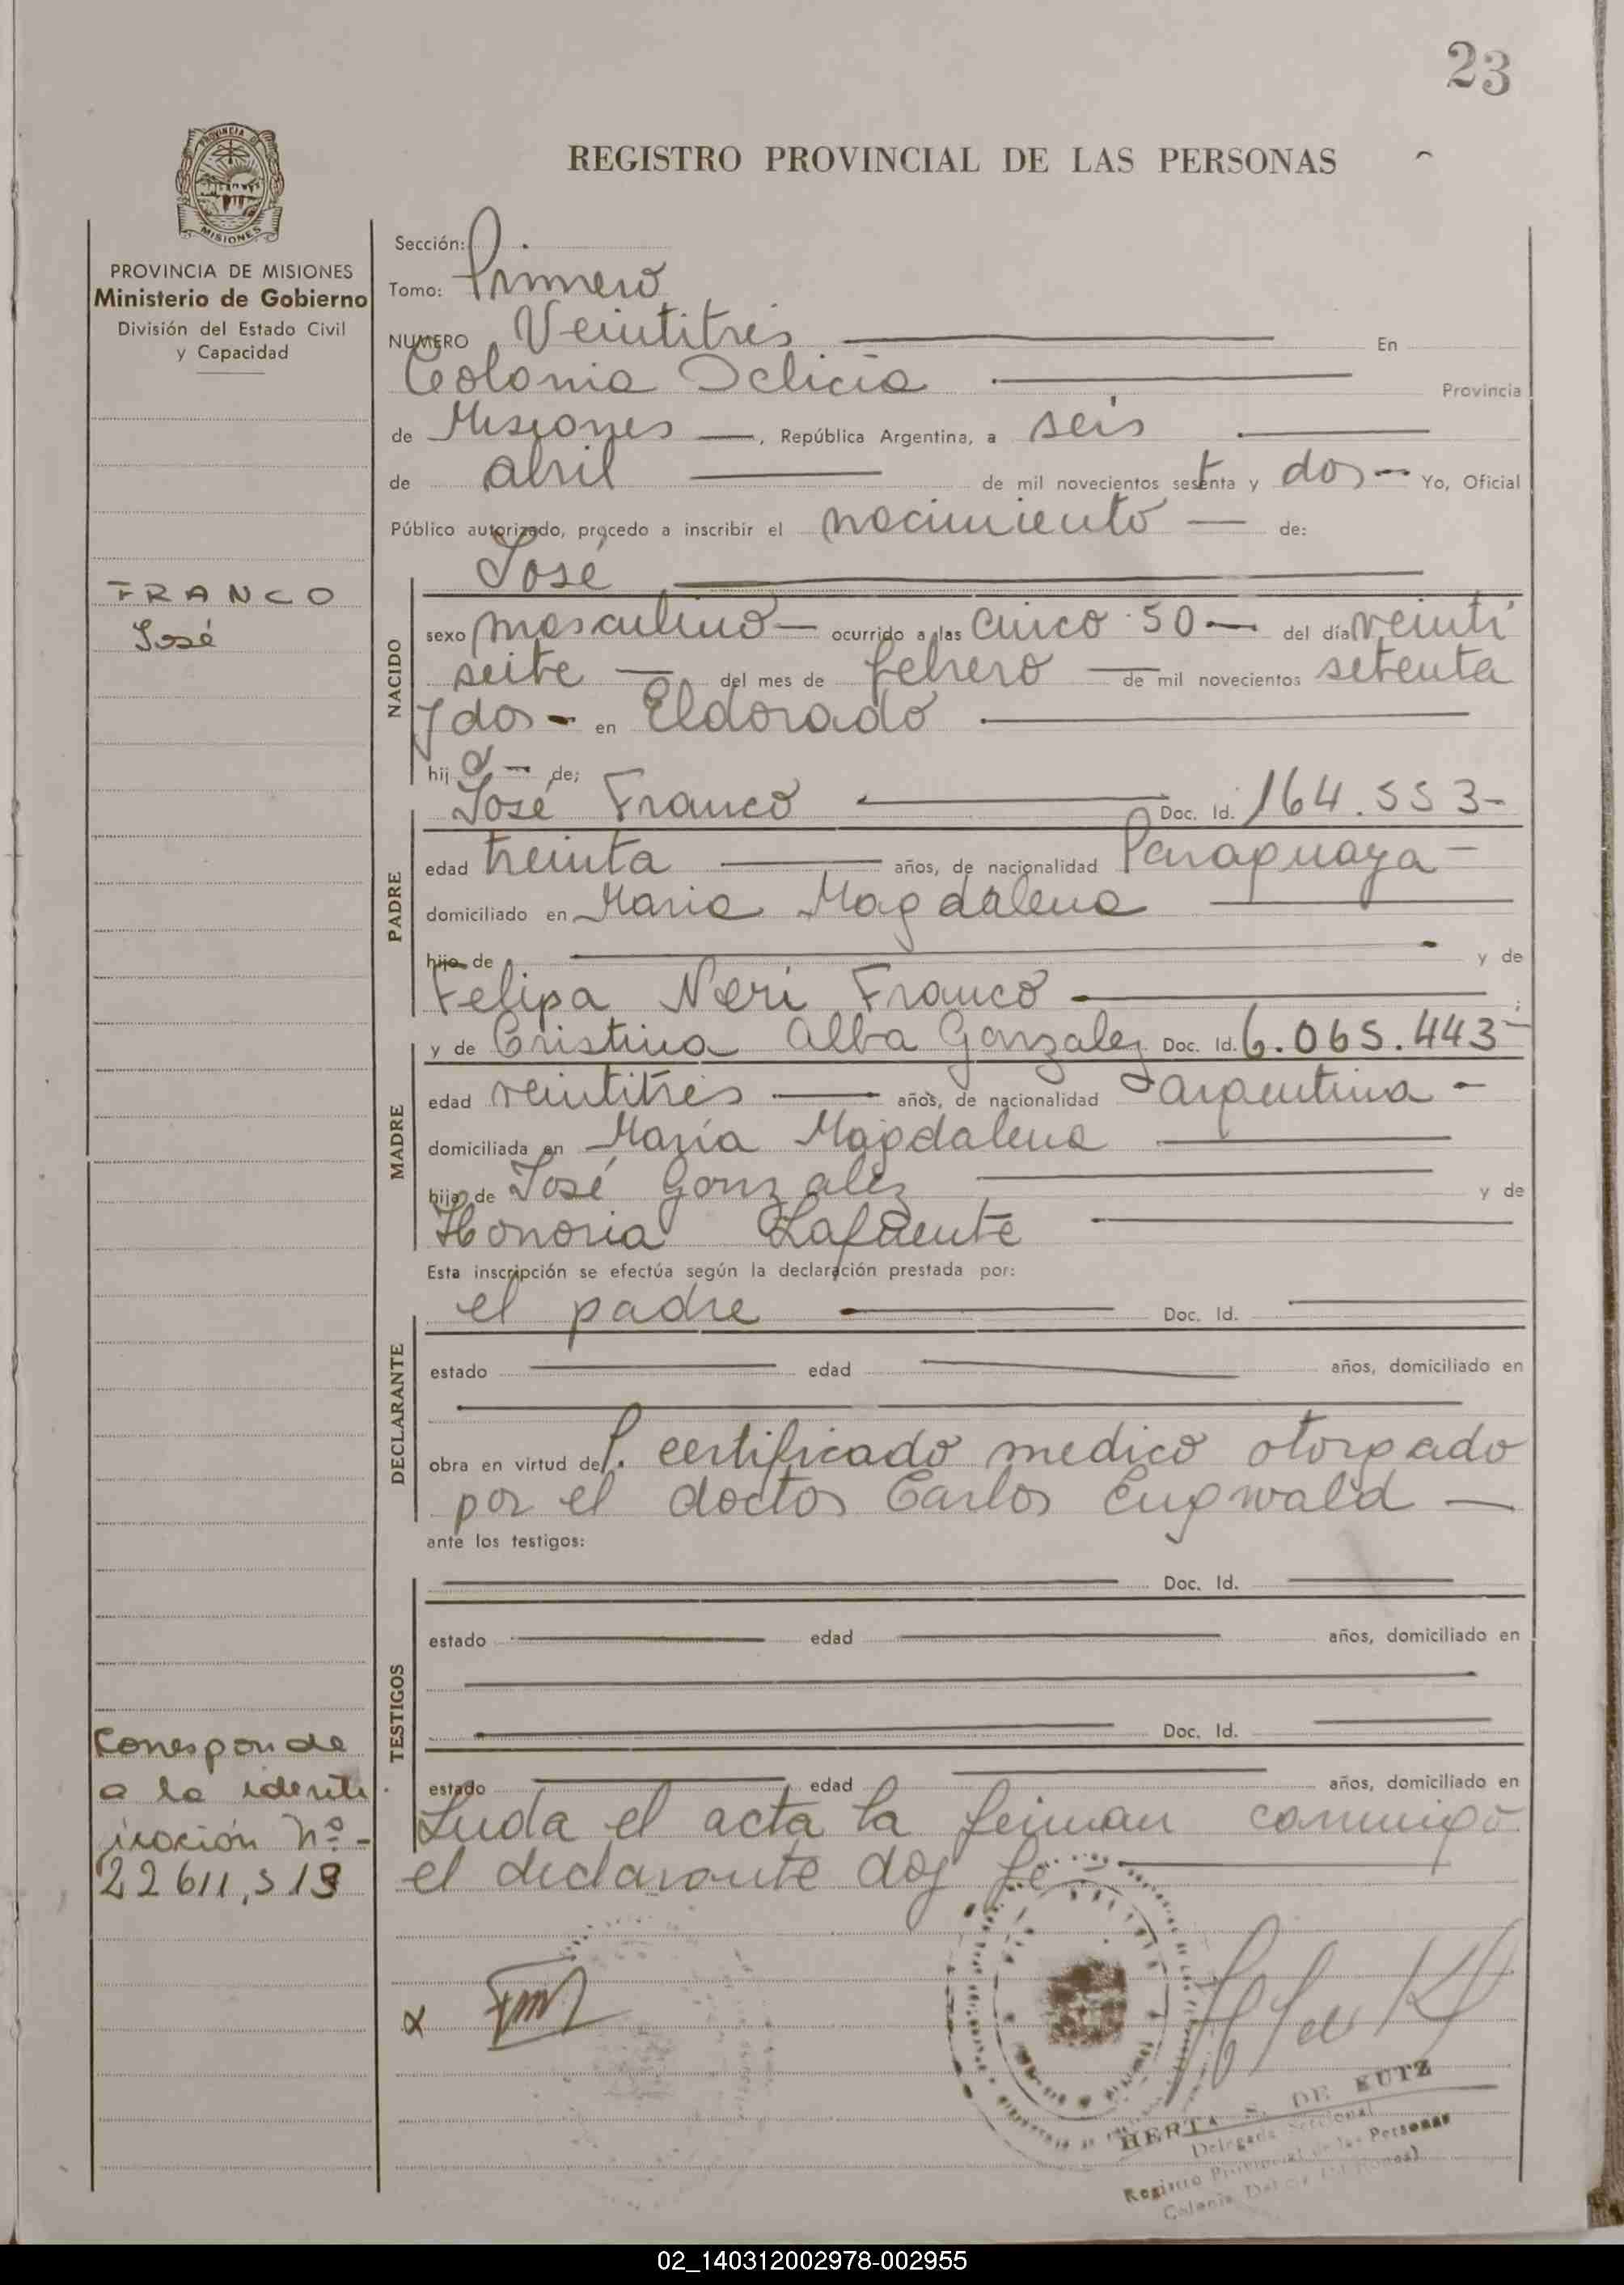 23
REGISTRO PROVINCIAL DE LAS PERSONAS
PROVINCIA DE MISIONES
Ministerio de Gobierno
División del Estado Civil
y Capacidad
FRANCO
José
Corresponde
a la identi
icación nº-
Sección:
Tomo: Primero
NUMERO Veintitrés En
Colonia Delicia Provincia
de Misiones, República Argentina, a seis
de abril de mil novecientos setenta y dos Yo, Oficial
Público autorizado, procedo a inscribir el nacimiento de:
José
NACIDO
sexo masculino ocurrido a las cinco 50 del día veinti
seite del mes de febrero de mil novecientos setenta
y dos en Eldorado
hijo de;
PADRE
José Franco Doc. Id. 164.553
edad treinta años, de nacionalidad Paraguaya
domiciliado en Maria Magdalena
hijo de y de
Felipa Neri Franco
MADRE
y de Cristina Alba Gonzalez Doc. Id. 6.065.443
edad veintitrés años, de nacionalidad argentina
domiciliada en María Magdalena
hija de José Gonzalez y de
Honoria Lafuente
Esta inscripción se efectúa según la declaración prestada por:
DECLARANTE
el padre Doc. Id.
estado edad años, domiciliado en
obra en virtud del certificado medico otorgado
por el doctor Carlos
ante los testigos:
TESTIGOS
Doc. Id.
estado edad años, domiciliado en
Doc. Id.
estado edad años, domiciliado en
Leida el acta la firman conmigo
el declarante doy fe
HERTA S. DE KUTZ
Delegada Seccional
Registro Provincial de las Personas
Colonia
02_140312002978-002955